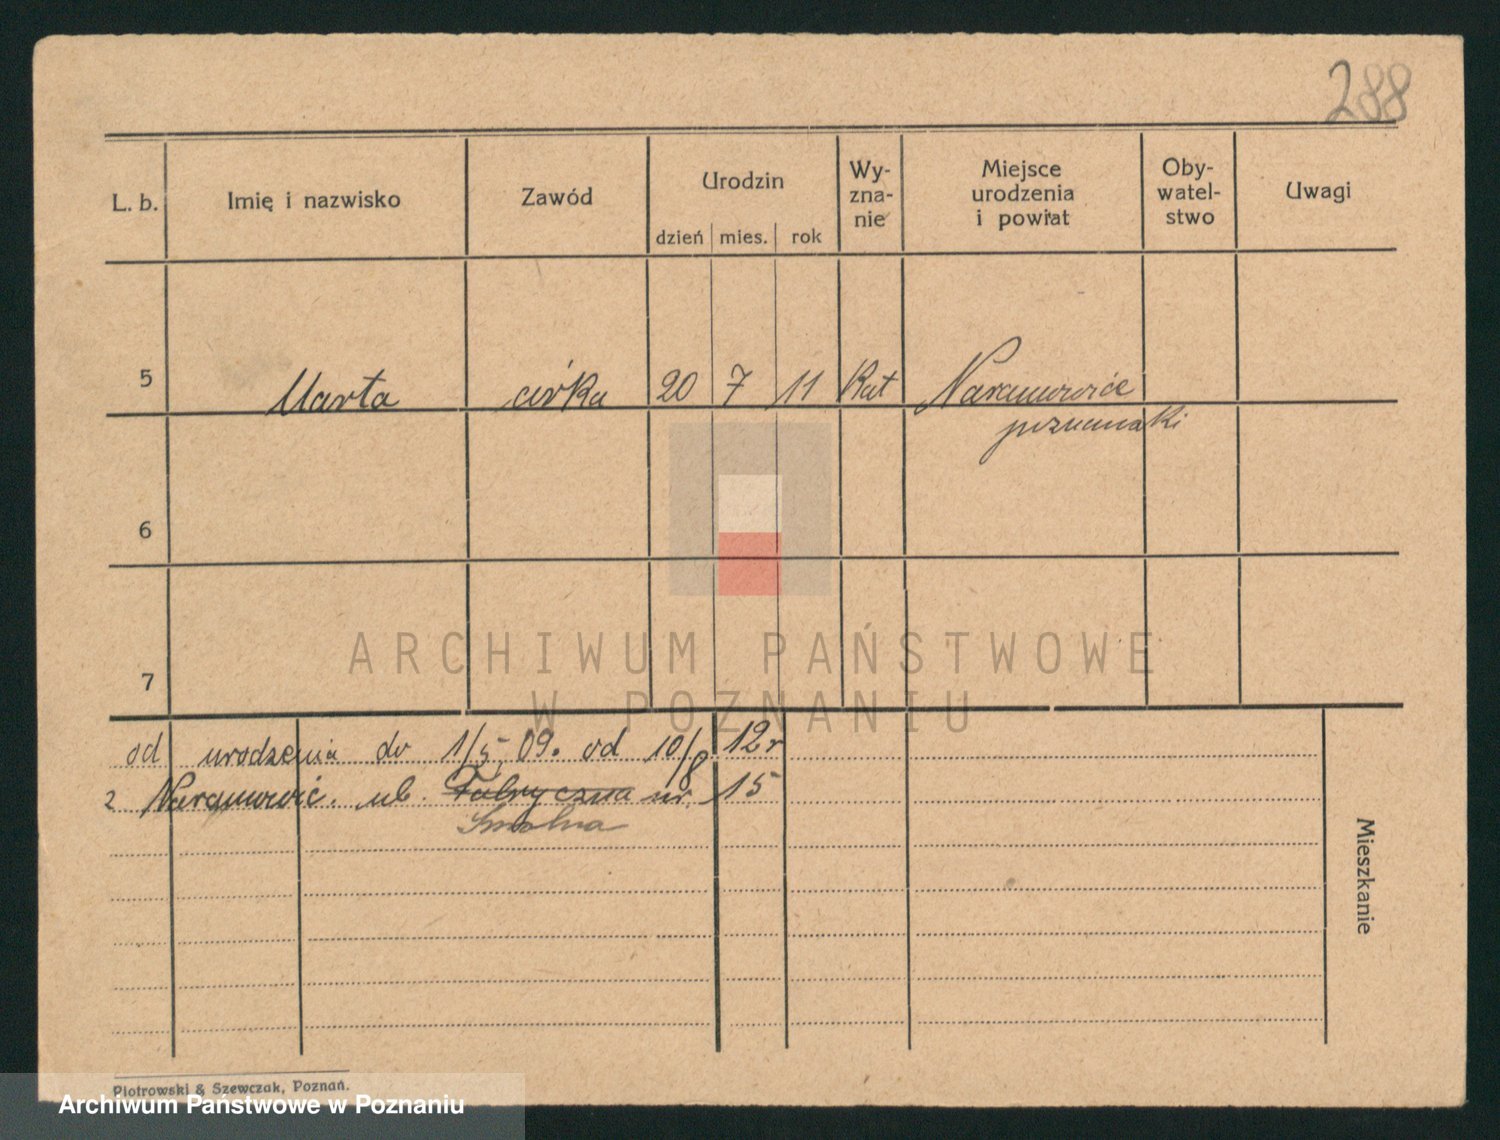 288
L. b. Imię i nazwisko Zawód Urodzin Wy-zna-nie Miejsce urodzenia i powiat Oby-watel-stwo Uwagi
dzień mies. rok
5 Marta córka 20 7 11 Kat Naramowice
poznański
6
7
od urodzenia do 1/5 09. od 10/8 12 r
z Naramowic. ul. Fabryczna nr. 15
Smolna
Mieszkanie
Piotrowski & Szewczak, Poznań.
ARCHIWUM PAŃSTWOWE
W POZNANIU
Archiwum Państwowe w Poznaniu